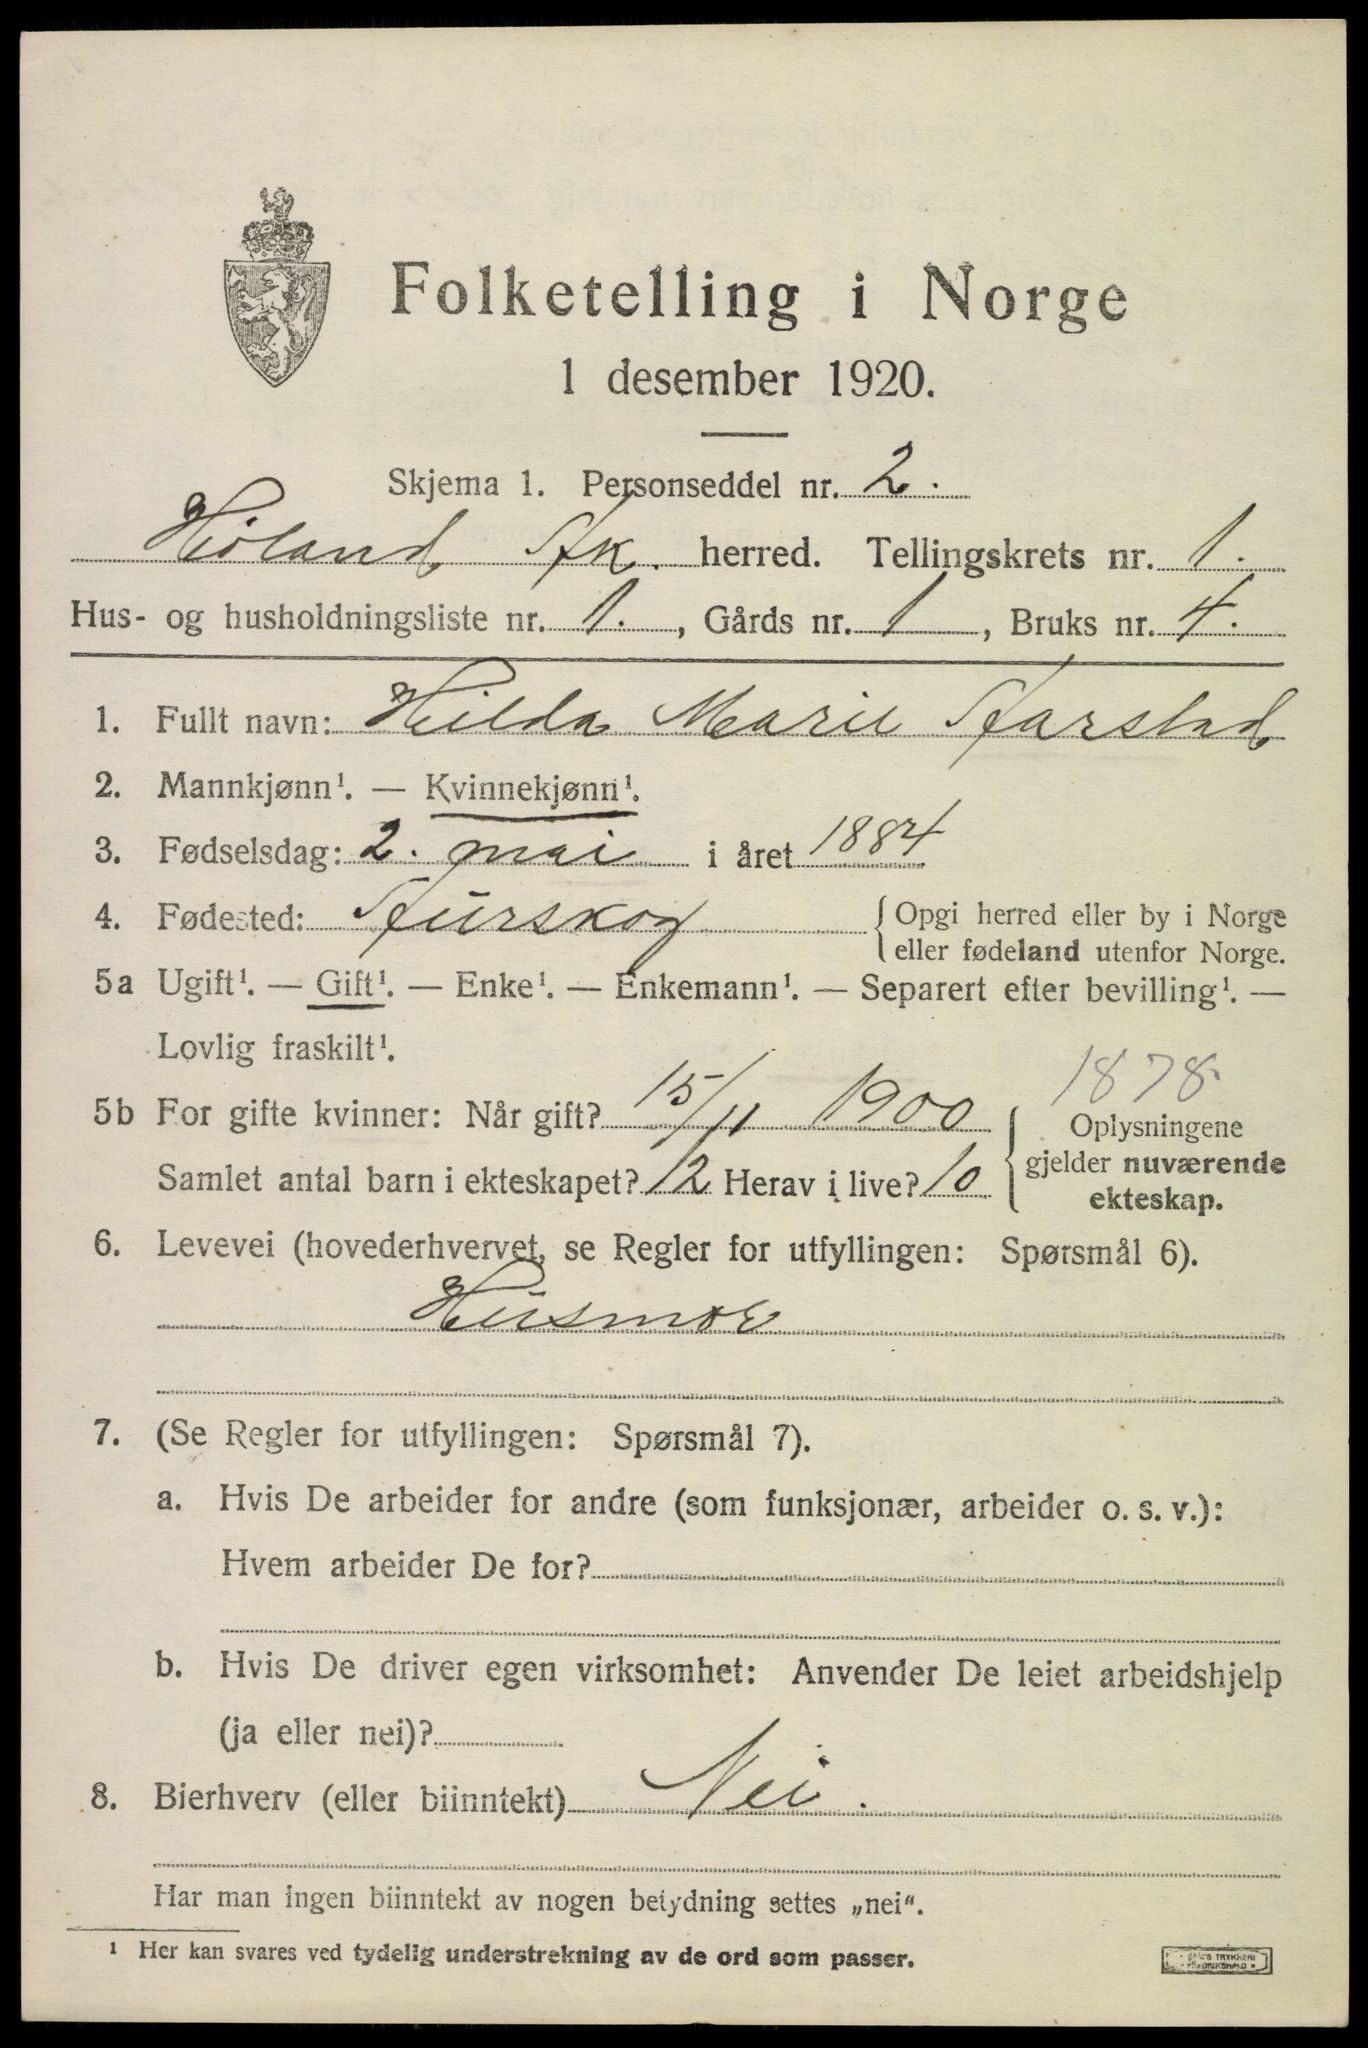 Folketelling i Norge
1 desember 1920.
Skjema 1. Personseddel nr. 2.
Høland Ak. herred. Tellingskrets nr. 1.
Hus- og husholdningsliste nr. 1., Gårds nr. 1, Bruks nr. 4.
1. Fullt navn: Hilda Marie Aarstad
2. Mannkjønn¹. — Kvinnekjønn¹.
3. Fødselsdag: 2. mai i året 1884
4. Fødested: Aurskog { Opgi herred eller by i Norge
eller fødeland utenfor Norge.
5a Ugift¹. — Gift¹. — Enke¹. — Enkemann¹. — Separert efter bevilling¹. —
Lovlig fraskilt¹.
1878.
5b For gifte kvinner: Når gift? 15/11 1900 { Oplysningene
gjelder nuværende
ekteskap.
Samlet antal barn i ekteskapet? 12 Herav i live? 10
6. Levevei (hovederhvervet, se Regler for utfyllingen: Spørsmål 6).
Husmor
7. (Se Regler for utfyllingen: Spørsmål 7).
a. Hvis De arbeider for andre (som funksjonær, arbeider o. s. v.):
Hvem arbeider De for?
b. Hvis De driver egen virksomhet: Anvender De leiet arbeidshjelp
(ja eller nei)?
8. Bierhverv (eller biinntekt) Nei.
Har man ingen biinntekt av nogen betydning settes „nei“.
¹ Her kan svares ved tydelig understrekning av de ord som passer.
TRYKKERI
FREDRIKSHALD